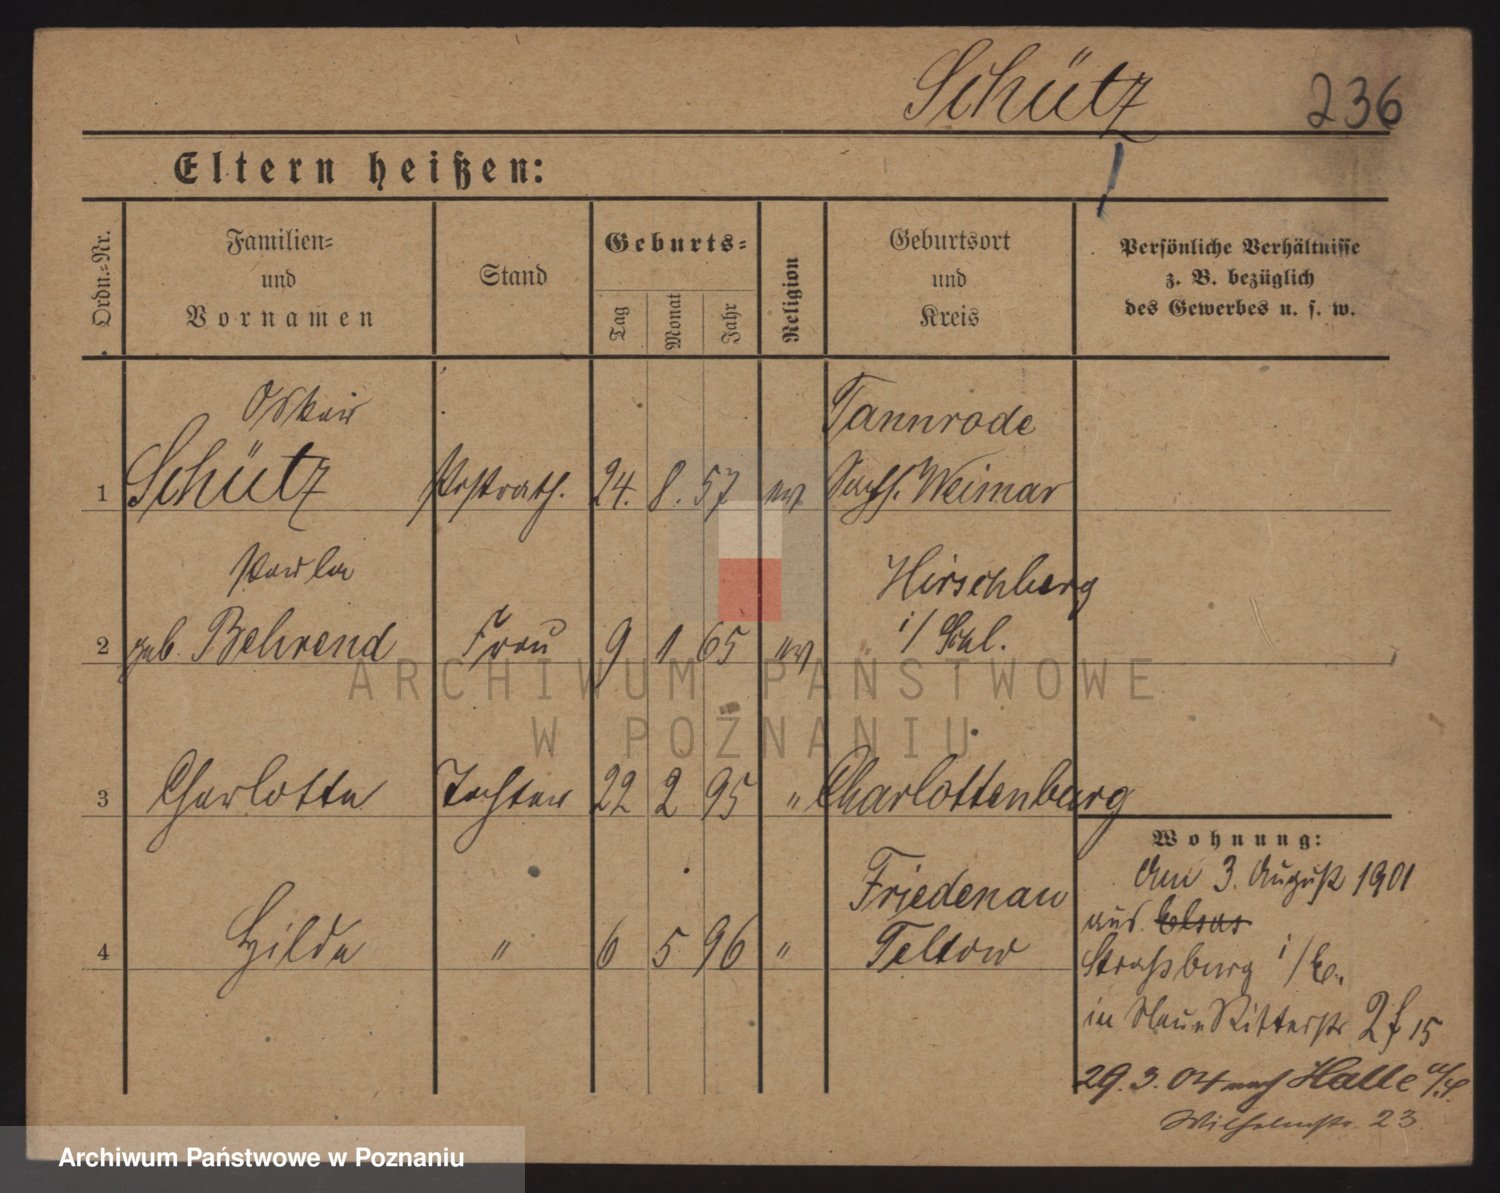 Schütz 236
Eltern heißen:
Ordn.=Nr.
Familien=
und
Vornamen
Stand
Geburts=
Tag
Monat
Jahr
Religion
Geburtsort
und
Kreis
Persönliche Verhältnisse
z. B. bezüglich
des Gewerbes u. s. w.
Oskar Tannrode
1 Schütz Postrath. 24. 8. 57 ev Sachs. Weimar
Paula Hirschberg
2 geb. Behrend Frau 9 1 65 ev i/ Schl.
3 Charlotte Tochter 22 2 95 " Charlottenburg
Wohnung:
Am 3. August 1901
Friedenau
aus Elsas
4 Hilda " 6 5 96 " Teltow
Straßburg i/E.
in Neue Ritterstr 2 f 15
29.3.04 nach Halle a/S.
Wilhelmstr. 23
ARCHIWUM PAŃSTWOWE
W POZNANIU
Archiwum Państwowe w Poznaniu